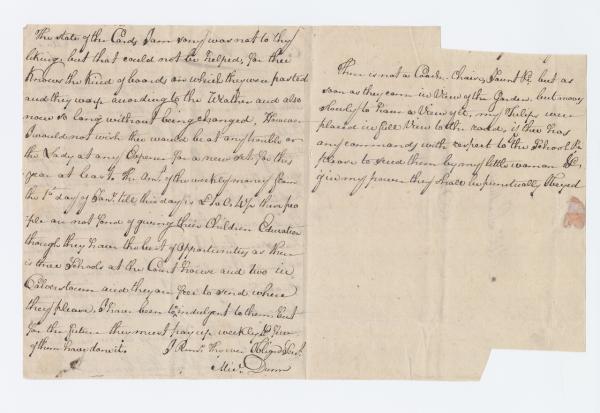 The state of the Cards I am sorry was not to thy
liking, but that could not be helped, for thee
Knows the kind of boards on which they were pasted
and they warp according to the Wather and also
now so long without being changed, However
I would not wish thee would be at any trouble or
the Lady at any Expence for a new Set. for this
year at least The Amt. of the weekly money from
the 1st day of Jany. till this day is these peo
ple are not fond of giving their Children Education
though they have the best of opportunities as there
is three Schools at the Court house and two in
and they are free to send where
they please. I have been too indulgent to them. But
for the future they must pay up weekly & few
of them have done it. I Remn. thy ever Oblig'd Servt.
Michl. Dunn
There is not a Coach, Chaise, Jaunt &c. but as
soon as they come in View of the Garden, but move
slowly to have a View of it, my Tulips were
placed in full View to the road, if thee has
any commands with respect to the School &c.
please to send them by my little woman &
give my power they shall be punctually Obeyed